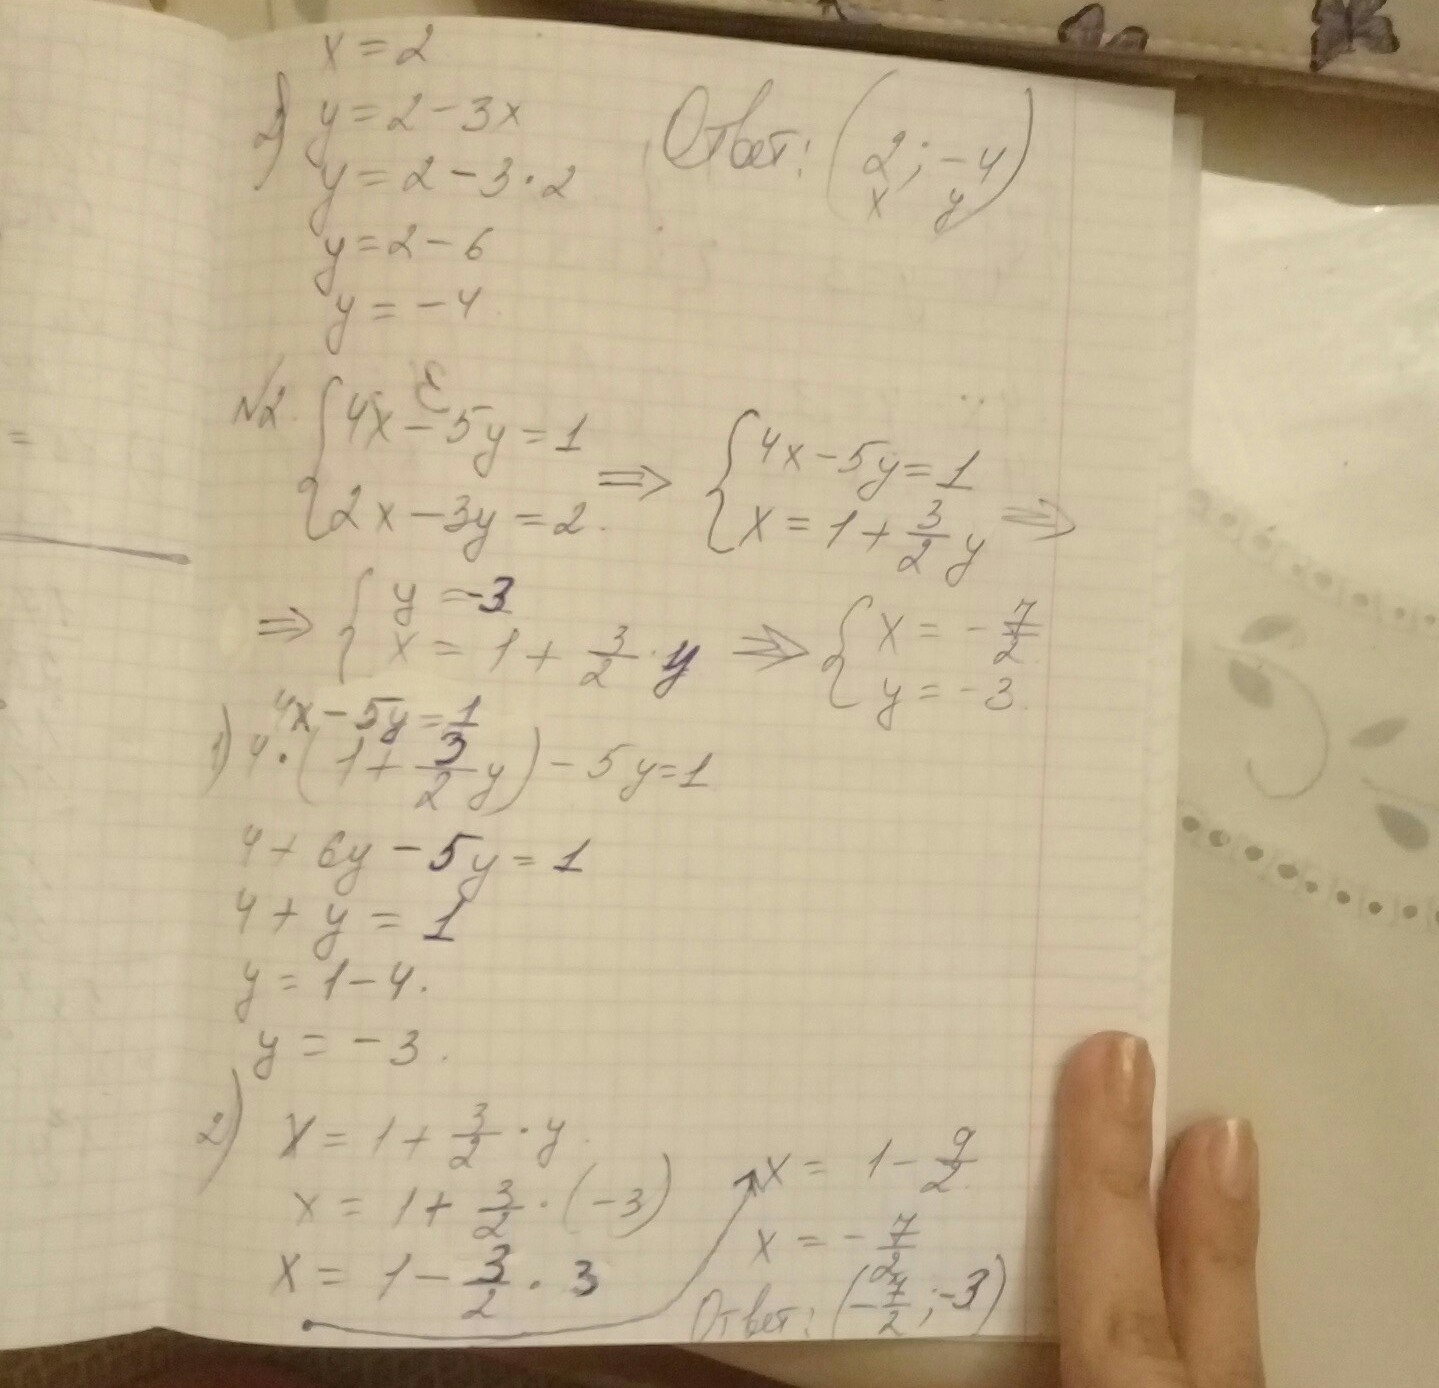 x = 2
2) y = 2 - 3x
y = 2 - 3·2
y = 2 - 6
y = -4
Ответ: (2; -4)
x y
№2. { 4x - 5y = 1
2x - 3y = 2. ⇒ { 4x - 5y = 1
x = 1 + 3/2 y ⇒
⇒ { y = -3
x = 1 + 3/2 · y ⇒ { x = - 7/2
y = -3.
4x - 5y = 1
1) 4·(1 + 3/2 y) - 5y = 1
4 + 6y - 5y = 1
4 + y = 1
y = 1 - 4.
y = -3.
2) x = 1 + 3/2 · y.
x = 1 + 3/2 · (-3)
x = 1 - 3/2 · 3
x = 1 - 9/2
x = - 7/2
Ответ: (- 7/2; -3)